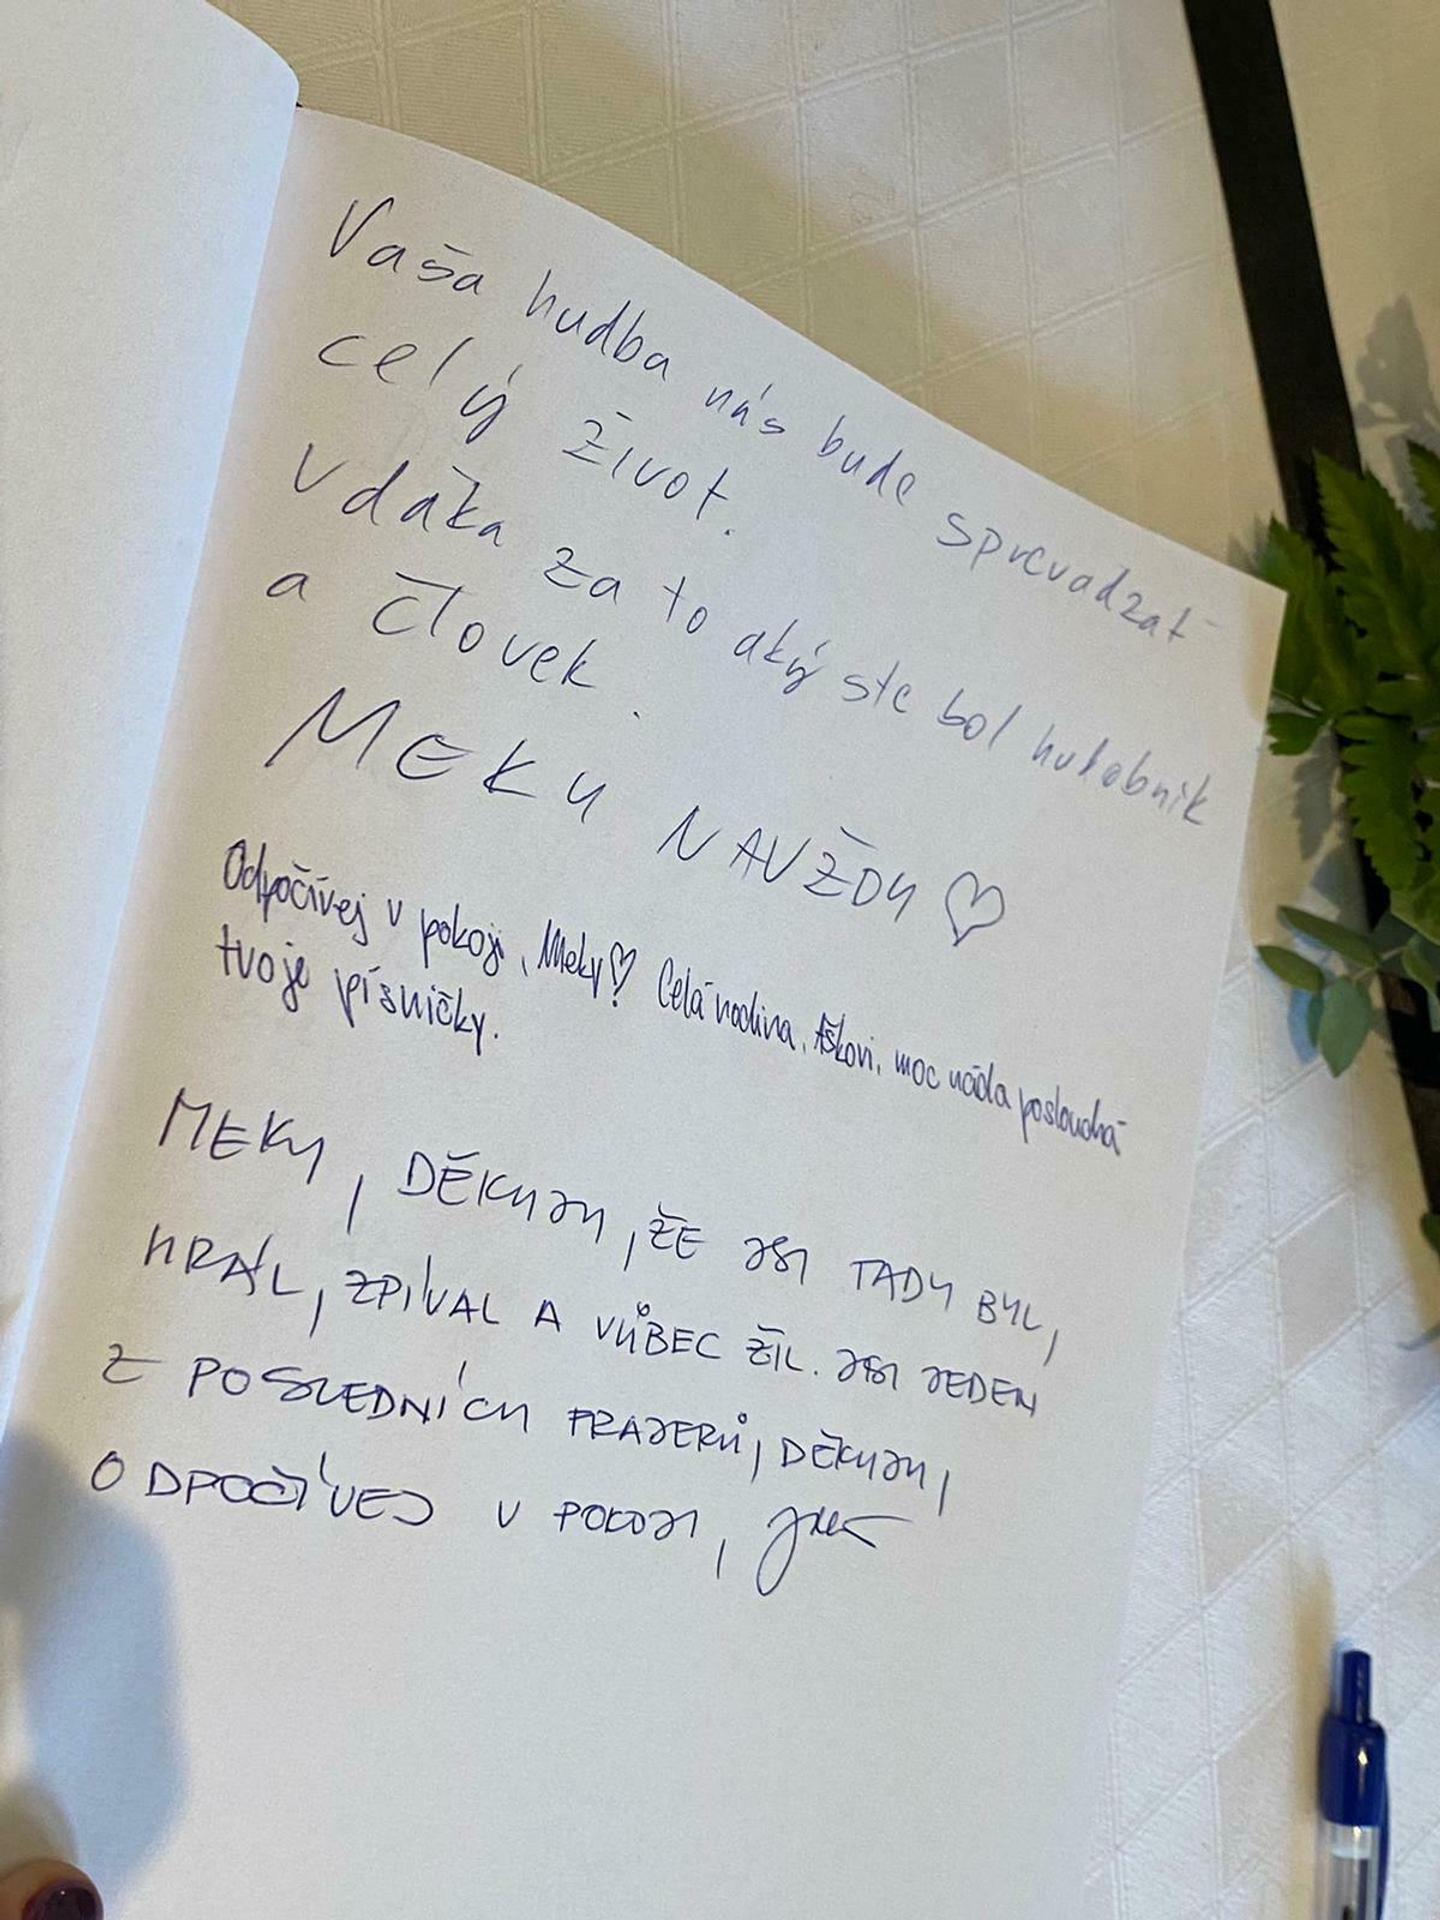 Vaša hudba nás bude sprevádzať
celý život.
Vďaka za to aký ste bol hudobník
a človek.
MEKY NAVŽDY ♡
Odpočívej v pokoji, Meky♡! Celá rodina, moc ráda poslouchá
tvoje písničky.
MEKY, DĚKUJU, ŽE JSI TADY BYL,
HRÁL, ZPÍVAL A VŮBEC ŽIL. JSI JEDEN
Z POSLEDNÍCH FRAJERŮ, DĚKUJU,
ODPOČÍVEJ V POKOJI,